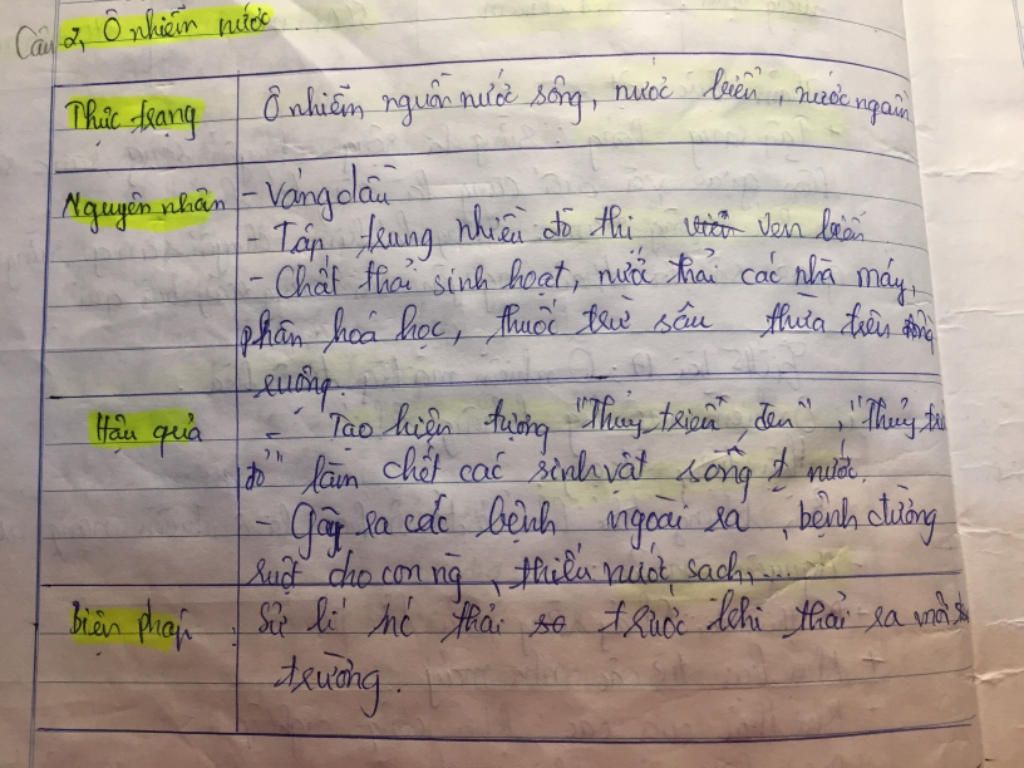 Câu 2, Ô nhiễm nước
Thực trạng
Ô nhiễm nguồn nước sông, nước biển, nước ngầm
Nguyên nhân
- Váng dầu
- Tập trung nhiều đô thị ven biển
- Chất thải sinh hoạt, nước thải các nhà máy,
phân hoá học, thuốc trừ sâu thừa trên đồng
ruộng.
Hậu quả
- Tạo hiện tượng "Thuỷ triều đen", "Thuỷ tri
đỏ" làm chết các sinh vật sống ở nước.
- Gây ra các bệnh ngoài ra, bệnh đường
ruột cho con ng, thiếu nước sạch,...
Biện pháp :
Sử lí nc thải trước khi thải ra môi
trường.